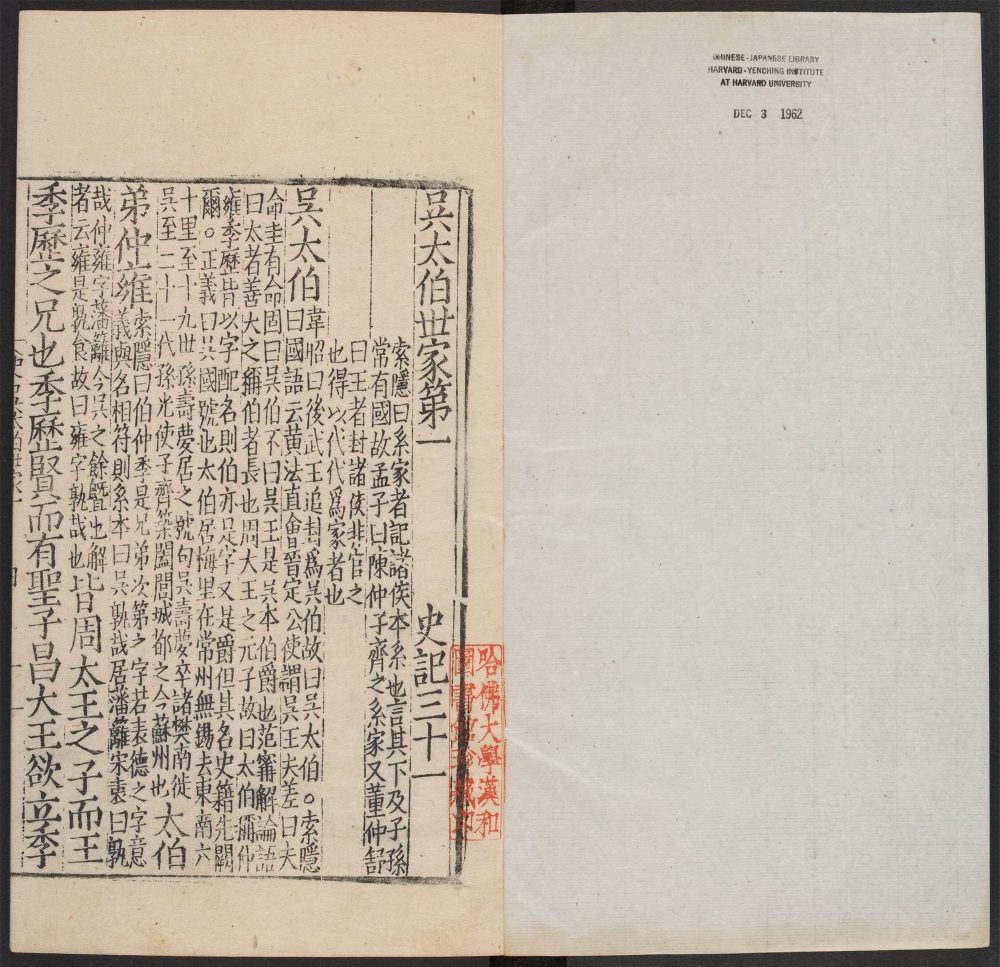 CHINESE-JAPANESE LIBRARY
HARVARD-YENCHING INSTITUTE
AT HARVARD UNIVERSITY
DEC 3 1962
哈佛大學漢和
圖書館珍藏印
吳太伯世家第一 史記三十一
索隱曰系家者記諸侯本系也言其下及子孫
常有國故孟子曰陳仲子齊之系家又董仲舒
曰王者封諸侯非官之
也得以代代爲家者也
吳太伯
韋昭曰後武王追封爲吳伯故曰吳太伯○索隱
曰國語云黄法直會晉定公使謂吳王夫差曰夫
命圭有命固曰吳伯不曰吳王是吳本伯爵也范甯解論語
曰太者善大之稱伯者長也周大王之元子故曰太伯稱仲
雍季歷皆以字配名則伯亦是字又是爵但其名史籍先闕
爾○正義曰吳國號也太伯居梅里在常州無錫去東南六
十里至十九世孫壽夢居之號句吳壽夢卒諸樊南徙
吳至二十一代孫光使子齊築闔閭城都之今蘇州也
太伯
弟仲雍
索隱曰伯仲季是兄弟次第之字若表德之字意
義與名相符則系本曰吳孰哉居藩籬宋衷曰孰
哉仲雍字藩籬今吳之餘暨也解
者云雍是孰食故曰雍字孰哉也
皆周太王之子而王
季歷之兄也季歷賢而有聖子昌大王欲立季